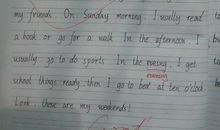 my friends. On Sunday morning. I usually read
a book or go for a walk. In the afternoon. I
usually go to do sports. In the evning. I get
evening
school things ready. then I go to bed at ten o'clock
Look. these are my weekends!